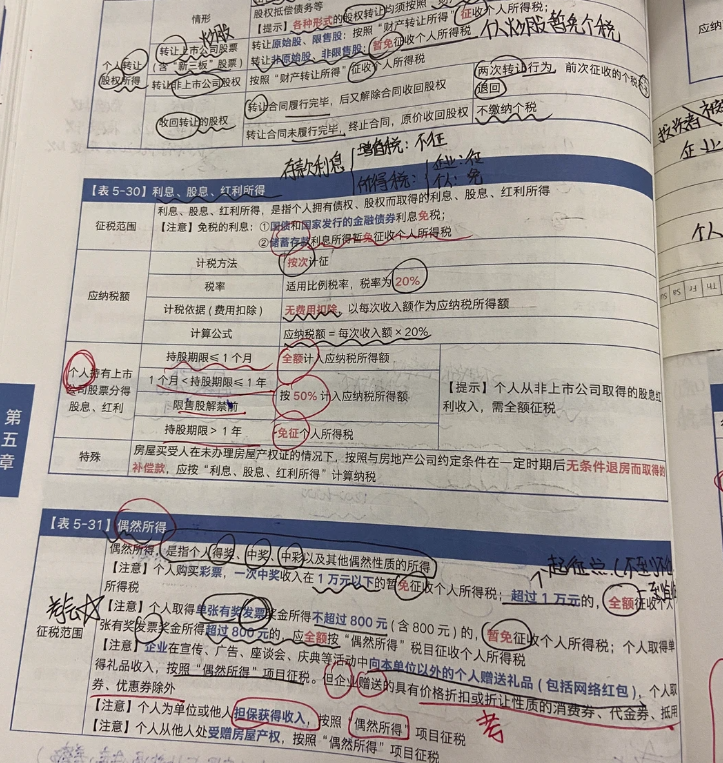 情形
股权抵偿债务等
【提示】各种形式的股权转让均须按照
征收个人所得税；
炒股
个人转让股权所得
转让上市公司股票（含“新三板”股票）
转让原始股、限售股：按照“财产转让所得”征收个人所得税
转让非原始股、非限售股：暂免征收个人所得税
个人炒股暂免个税
转让非上市公司股权
按照“财产转让所得”征收个人所得税
收回转让的股权
转让合同履行完毕，后又解除合同收回股权
两次转让行为，前次征收的个税
退回
转让合同未履行完毕，终止合同，原价收回股权
不缴纳个税
存款利息
增值税：不征
所得税：
企业：征
个人：免
【表 5-30】利息、股息、红利所得
征税范围
利息、股息、红利所得，是指个人拥有债权、股权而取得的利息、股息、红利所得
【注意】免税的利息：①国债和国家发行的金融债券利息免税；
②储蓄存款利息所得暂免征收个人所得税
应纳税额
计税方法
按次计征
税率
适用比例税率，税率为 20%
计税依据（费用扣除）
无费用扣除，以每次收入额作为应纳税所得额
计算公式
应纳税额 = 每次收入额 × 20%
个人持有上市公司股票分得股息、红利
持股期限≤ 1 个月
全额计入应纳税所得额
1 个月 < 持股期限≤ 1 年
按 50% 计入应纳税所得额
限售股解禁前
持股期限> 1 年
免征个人所得税
【提示】个人从非上市公司取得的股息红
利收入，需全额征税
特殊
房屋买受人在未办理房屋产权证的情况下，按照与房地产公司约定条件在一定时期后无条件退房而取得的
补偿款，应按“利息、股息、红利所得”计算纳税
第五章
【表 5-31】偶然所得
征税范围
偶然所得，是指个人得奖、中奖、中彩以及其他偶然性质的所得
起征点
【注意】个人购买彩票，一次中奖收入在 1 万元以下的暂免征收个人所得税；超过 1 万元的，全额征收个人
所得税
【注意】个人取得单张有奖发票奖金所得不超过 800 元（含 800 元）的，暂免征收个人所得税；个人取得单
张有奖发票奖金所得超过 800 元的，应全额按“偶然所得”税目征收个人所得税
【注意】企业在宣传、广告、座谈会、庆典等活动中向本单位以外的个人赠送礼品（包括网络红包），个人取
得礼品收入，按照“偶然所得”项目征税。但企业赠送的具有价格折扣或折让性质的消费券、代金券、抵用
券、优惠券除外
考
【注意】个人为单位或他人担保获得收入，按照“偶然所得”项目征税
【注意】个人从他人处受赠房屋产权，按照“偶然所得”项目征税
企业
个人